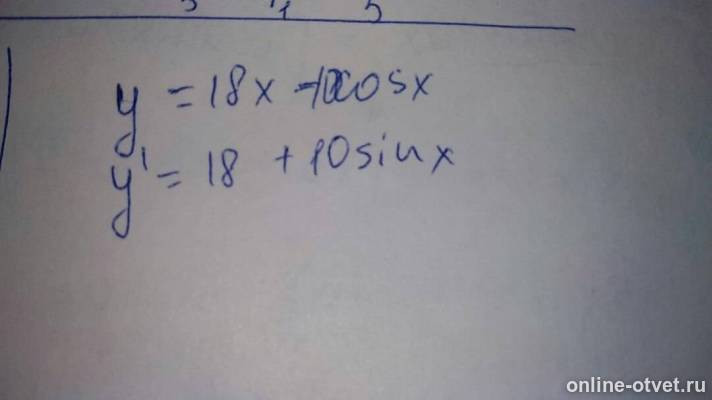 3 4 5
y = 18x - 10cosx
y' = 18 + 10sinx
online-otvet.ru